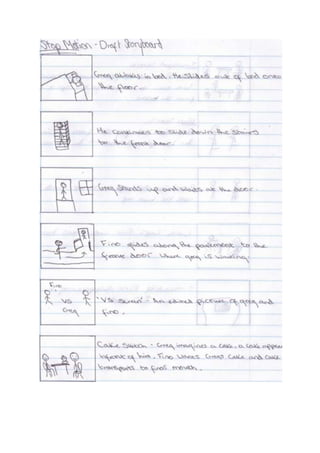 Stop Motion - Draft Storyboard
Greg awakes in bed. He slides out of bed onto
the floor.
He continues to slide down the stairs
to the front door.
Greg stands up and waits at the door.
Fino slides along the pavement to the
front door where greg is waiting.
Fino
VS
Greg
'VS Screen' - An edited picture of greg and
fino.
Cake Scene - Greg imagines a cake, a cake appears
infront of him. Fino wants Gregs cake and cake
transports to finos mouth.